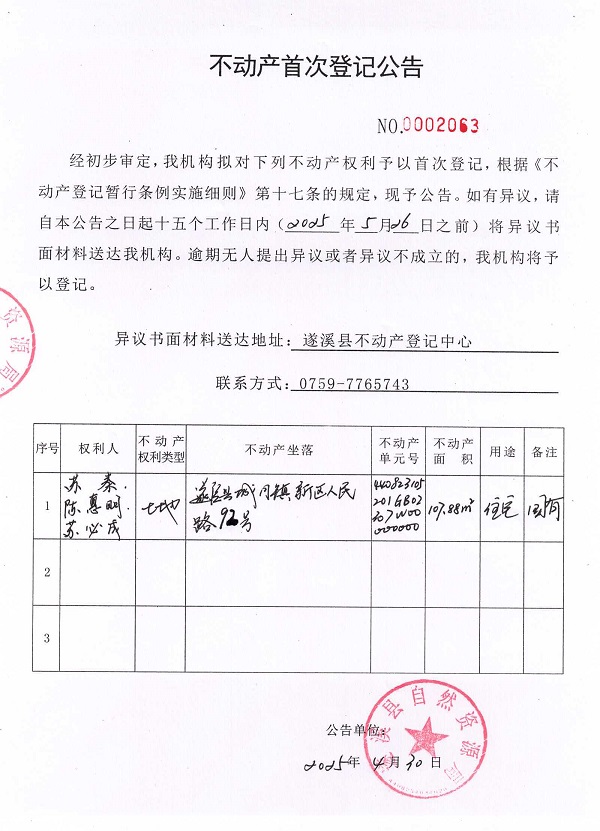 不动产首次登记公告
NO.0002063
经初步审定，我机构拟对下列不动产权利予以首次登记，根据《不
动产登记暂行条例实施细则》第十七条的规定，现予公告。如有异议，请
自本公告之日起十五个工作日内（2025 年 5 月 26 日之前）将异议书
面材料送达我机构。逾期无人提出异议或者异议不成立的，我机构将予
以登记。
资源局
异议书面材料送达地址：遂溪县不动产登记中心
联系方式：0759-7765743
序号 权利人 不动产权利类型 不动产坐落 不动产单元号 不动产面积 用途 备注
1 苏秦、陈惠明、苏必成 土地 遂溪县城月镇新区人民路92号 440823105201GB02307W00000000 107.88m² 住宅 国有
2
3
遂溪县自然资源局
公告单位：
2025年 4 月 30 日